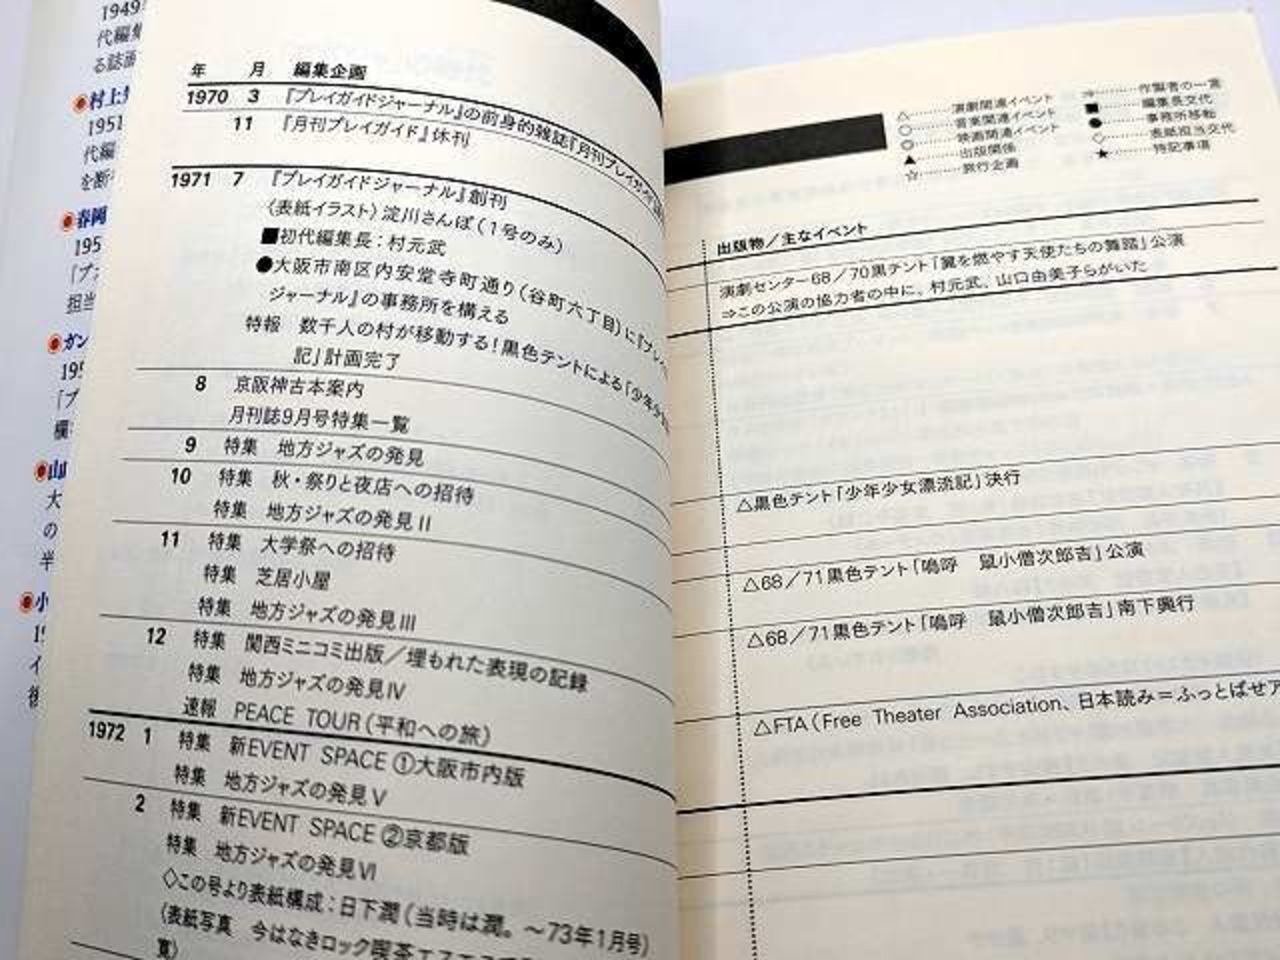 1949
代編集
●村上
1951
代編
を断
●春岡
195
「プ
担当
●ガン
195
「プ
欄
●山
大
の
半
●小
イ
後
年 月 編集企画
1970 3 『プレイガイドジャーナル』の前身的雑誌『月刊プレイガイ
11 『月刊プレイガイド』休刊
1971 7 『プレイガイドジャーナル』創刊
〈表紙イラスト〉淀川さんぽ(1号のみ)
■初代編集長:村元武
●大阪市南区内安堂寺町通り(谷町六丁目)に『プレイ
ジャーナル』の事務所を構える
特報 数千人の村が移動する!黒色テントによる「少年少女
記」計画完了
8 京阪神古本案内
月刊誌9月号特集一覧
9 特集 地方ジャズの発見
10 特集 秋・祭りと夜店への招待
特集 地方ジャズの発見II
11 特集 大学祭への招待
特集 芝居小屋
特集 地方ジャズの発見III
12 特集 関西ミニコミ出版/埋もれた表現の記録
特集 地方ジャズの発見IV
速報 PEACE TOUR(平和への旅)
1972 1 特集 新EVENT SPACE ①大阪市内版
特集 地方ジャズの発見V
2 特集 新EVENT SPACE ②京都版
特集 地方ジャズの発見VI
◇この号より表紙構成:日下潤(当時は潤。～73年1月号)
(表紙写真 今はなきロック喫茶
寛)
△………演劇関連イベント
○………音楽関連イベント
◎………映画関連イベント
▲………出版関係
☆………旅行企画
⇒………作製者の一言
■………編集長交代
●………事務所移転
◇………表紙担当交代
★………特記事項
出版物/主なイベント
演劇センター68/70黒テント「翼を燃やす天使たちの舞踏」公演
⇒この公演の協力者の中に、村元武、山口由美子らがいた
△黒色テント「少年少女漂流記」決行
△68/71黒色テント「嗚呼 鼠小僧次郎吉」公演
△68/71黒色テント「嗚呼 鼠小僧次郎吉」南下興行
△FTA(Free Theater Association、日本読み=ふっとばせア